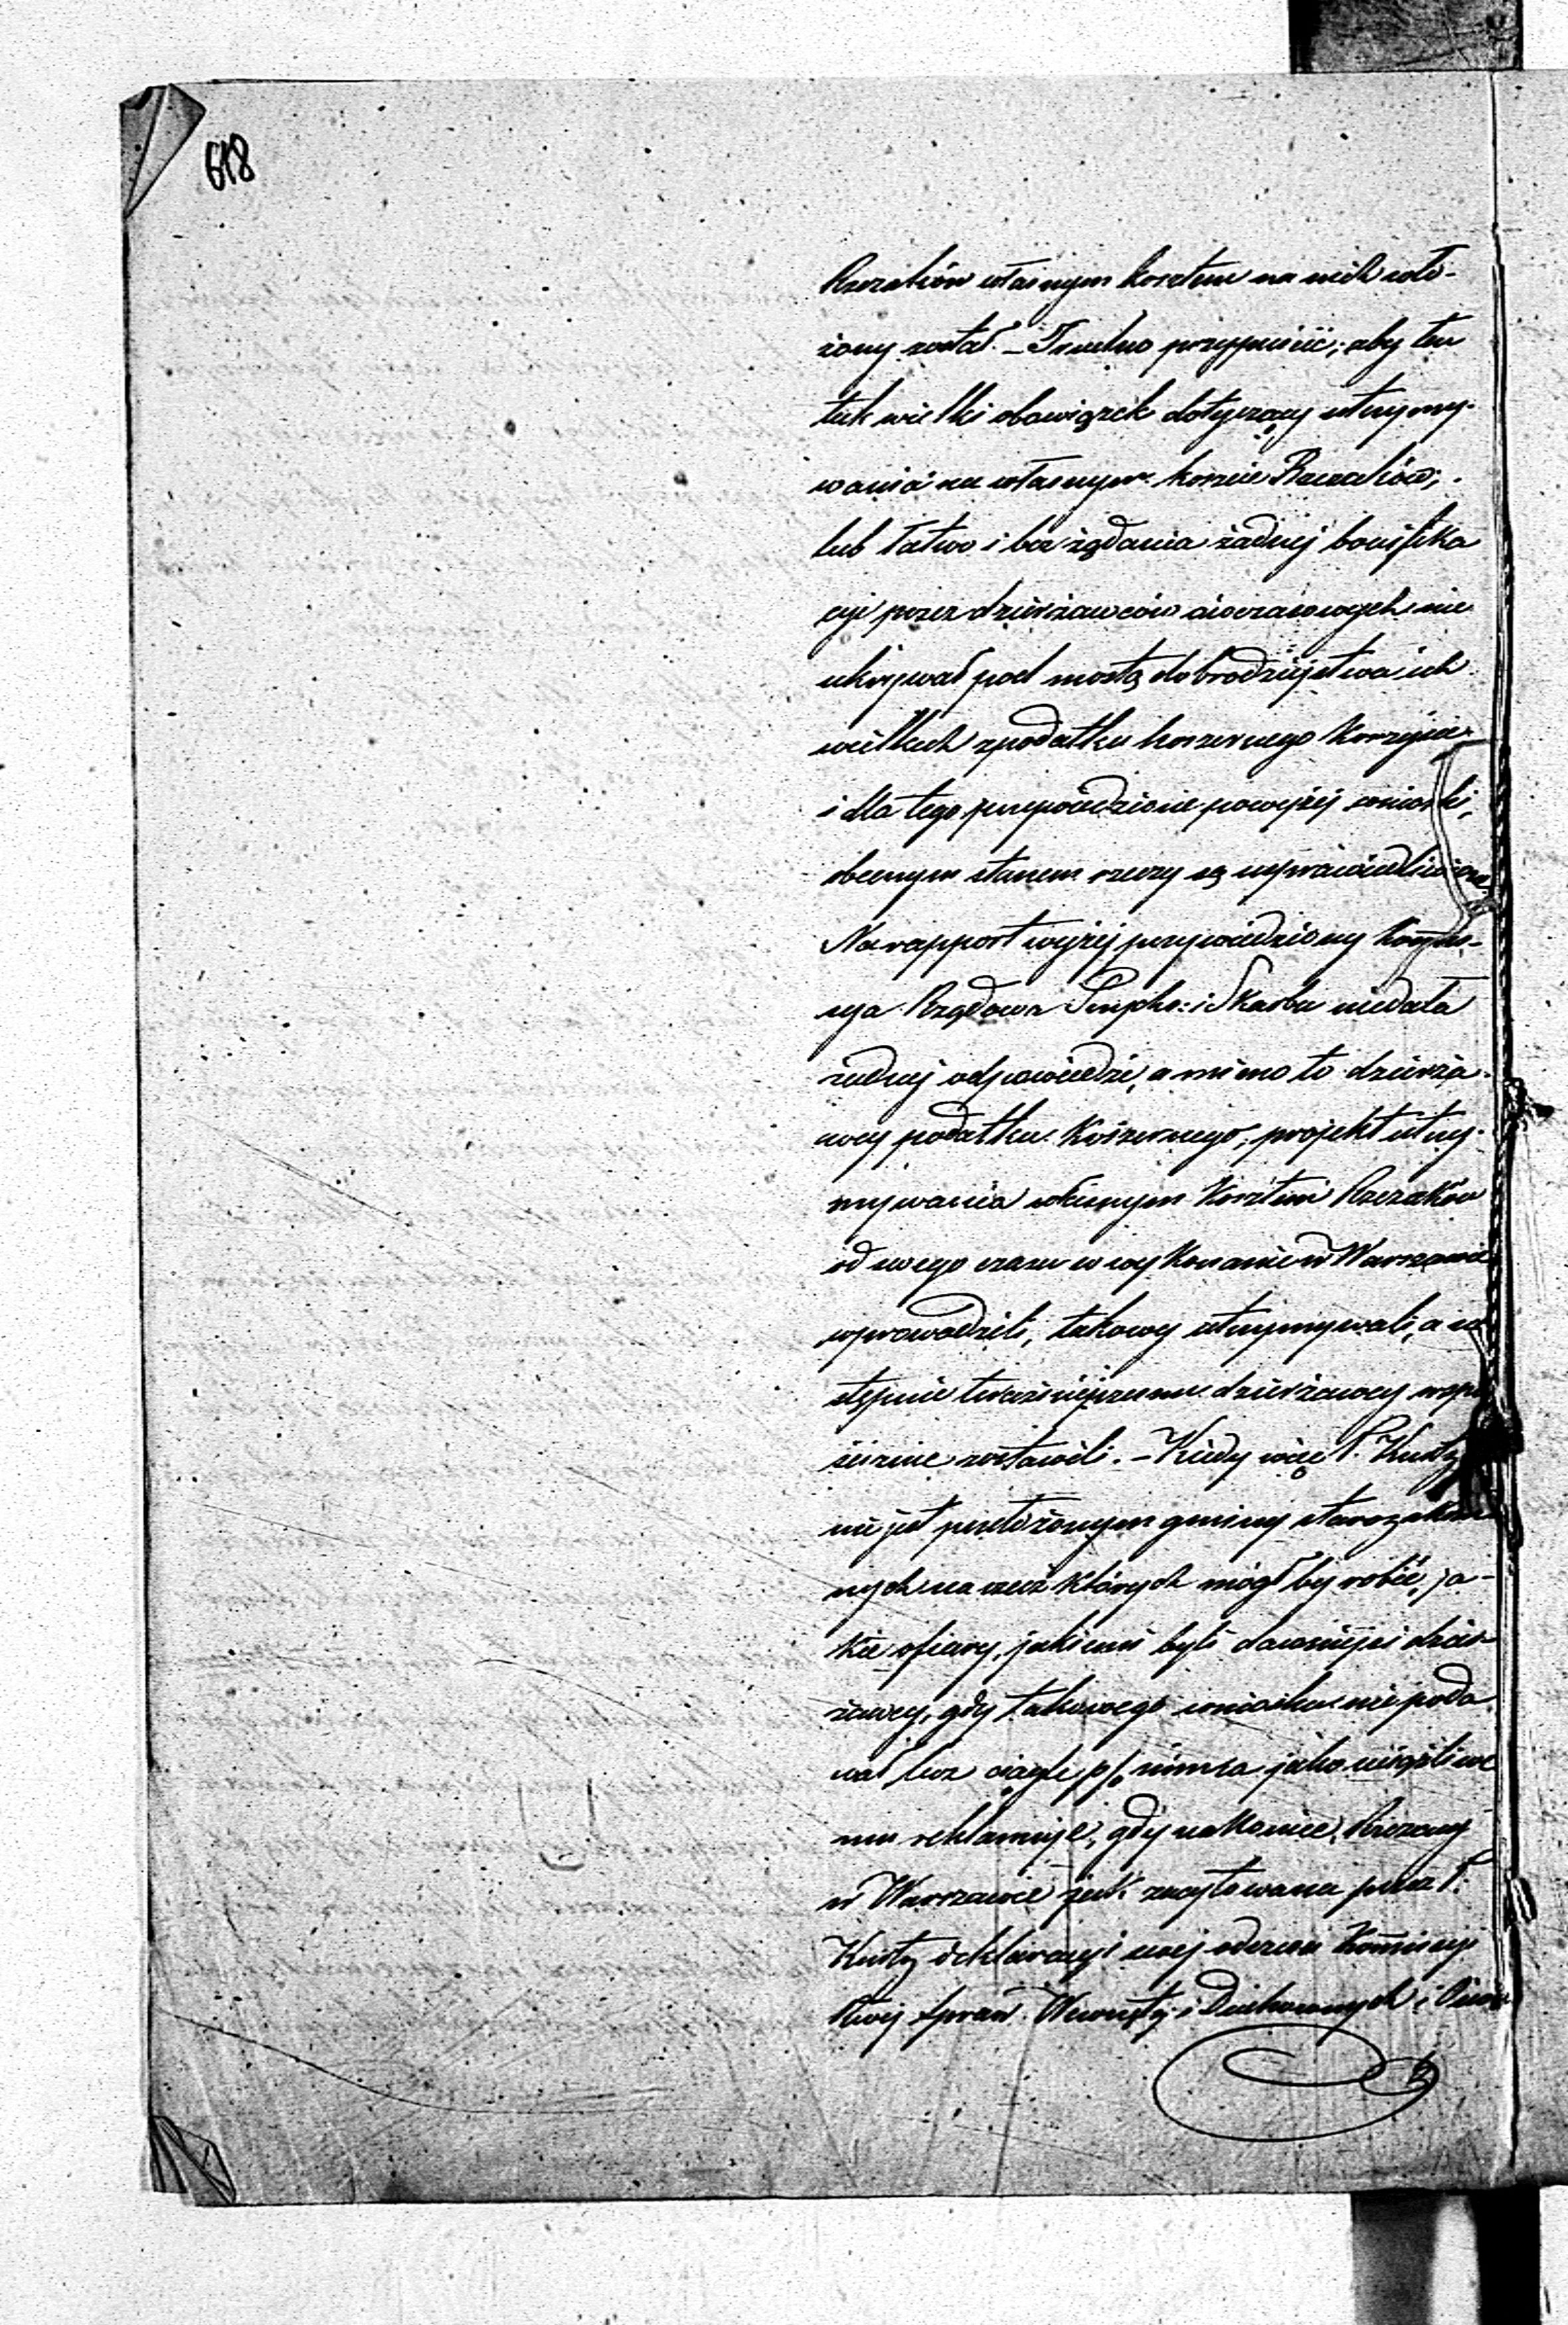 618
Rzezaków własnym kosztem na nich wło-
żony został. – Trudno przypuścić, aby ten
tak wielki obowiązek dotyczący utrzymy-
wania na własnym koszcie Rzezaków,
lub łatwo i bez żądania żadnej bonifika
cyi przez dzierżawców ówczasowych nie
ukrywał pod maską dobrodziejstwa ich
wielkich z podatku koszernego Korzyści
i dla tego przywiedzione powyżej wnioski,
obecnym stanem rzeczy są usprawiedliwione
Na rapport wyżej przywiedziony Kommis-
sya Rządowa Przych: i Skarbu niedała
żadnej odpowiedzi, a mimo to dzierża-
wcy podatku Koszernego, projekt utrzy-
mywania własnym Kosztem Rzezaków
od swego czasu w wykonanie w Warszawie
wprowadzili, takowy utrzymywali, a na
stępnie teraźniejszemu dzierżawcy w spu
ściznie zostawili. – Kiedy więc P.
nie jest przełożonym gminy starozakon
nych na rzecz Których mógł by robić, ja-
kie ofiary, jakiemi byli dawniejsi dzier
żawcy, gdy takowego wniosku nie poda
wał lecz ciągle jako uciążliwe
mu reklamuje, gdy na koniec, Rzezanej
w Warszawie jak zacytowana przez P.
deklaracyi swej odezwa Kommissyi
Rwej Spraw Wewnętr: i Duchownych i Oświe